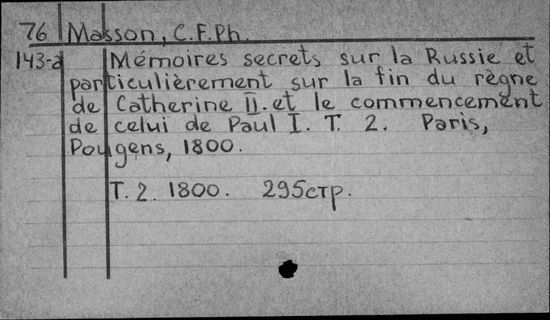 76 Masson, C.F.Ph.
143-a Mémoires secrets sur la Russie et
particulièrement sur la fin du règne
de Catherine II. et le commencement
de celui de Paul I. T. 2. Paris,
Pougens, 1800.
T. 2. 1800. 295стр.